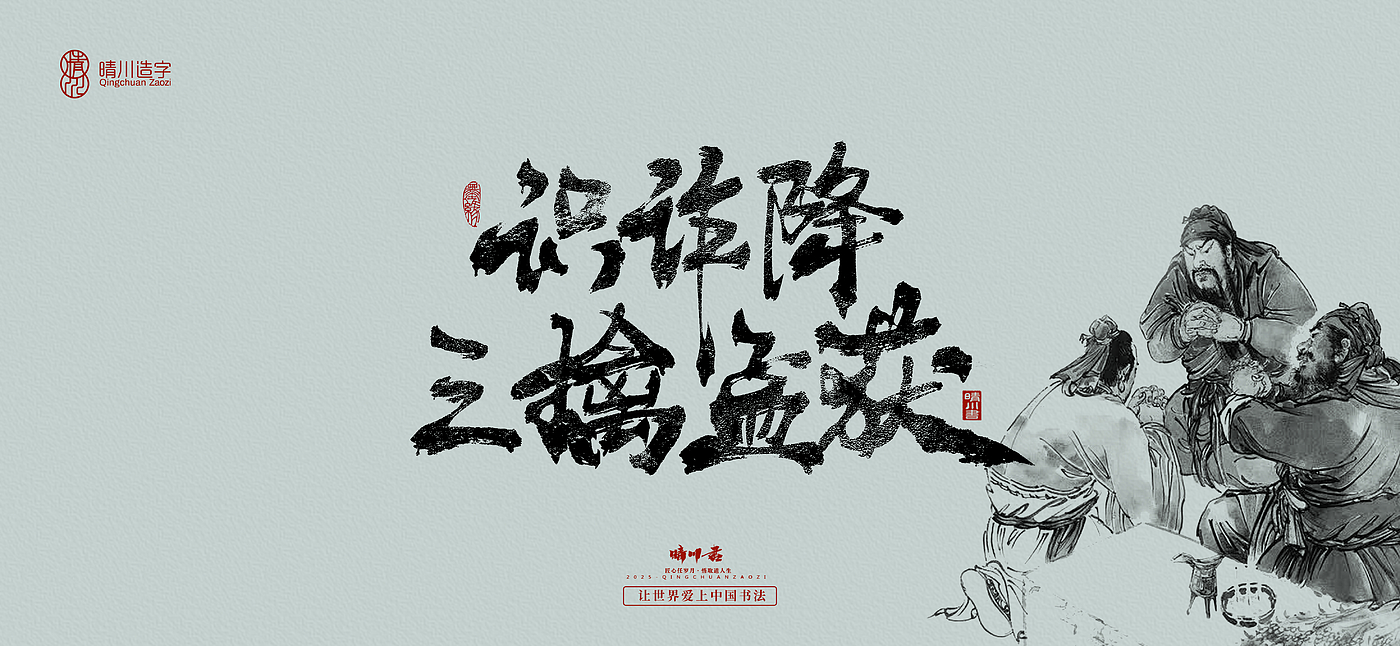 晴川造字
Qingchuan Zaozi
识诈降
三擒孟获
晴川書
晴川書
匠心任岁月·悟取道人生
2025·QINGCHUANZAOZI
让世界爱上中国书法